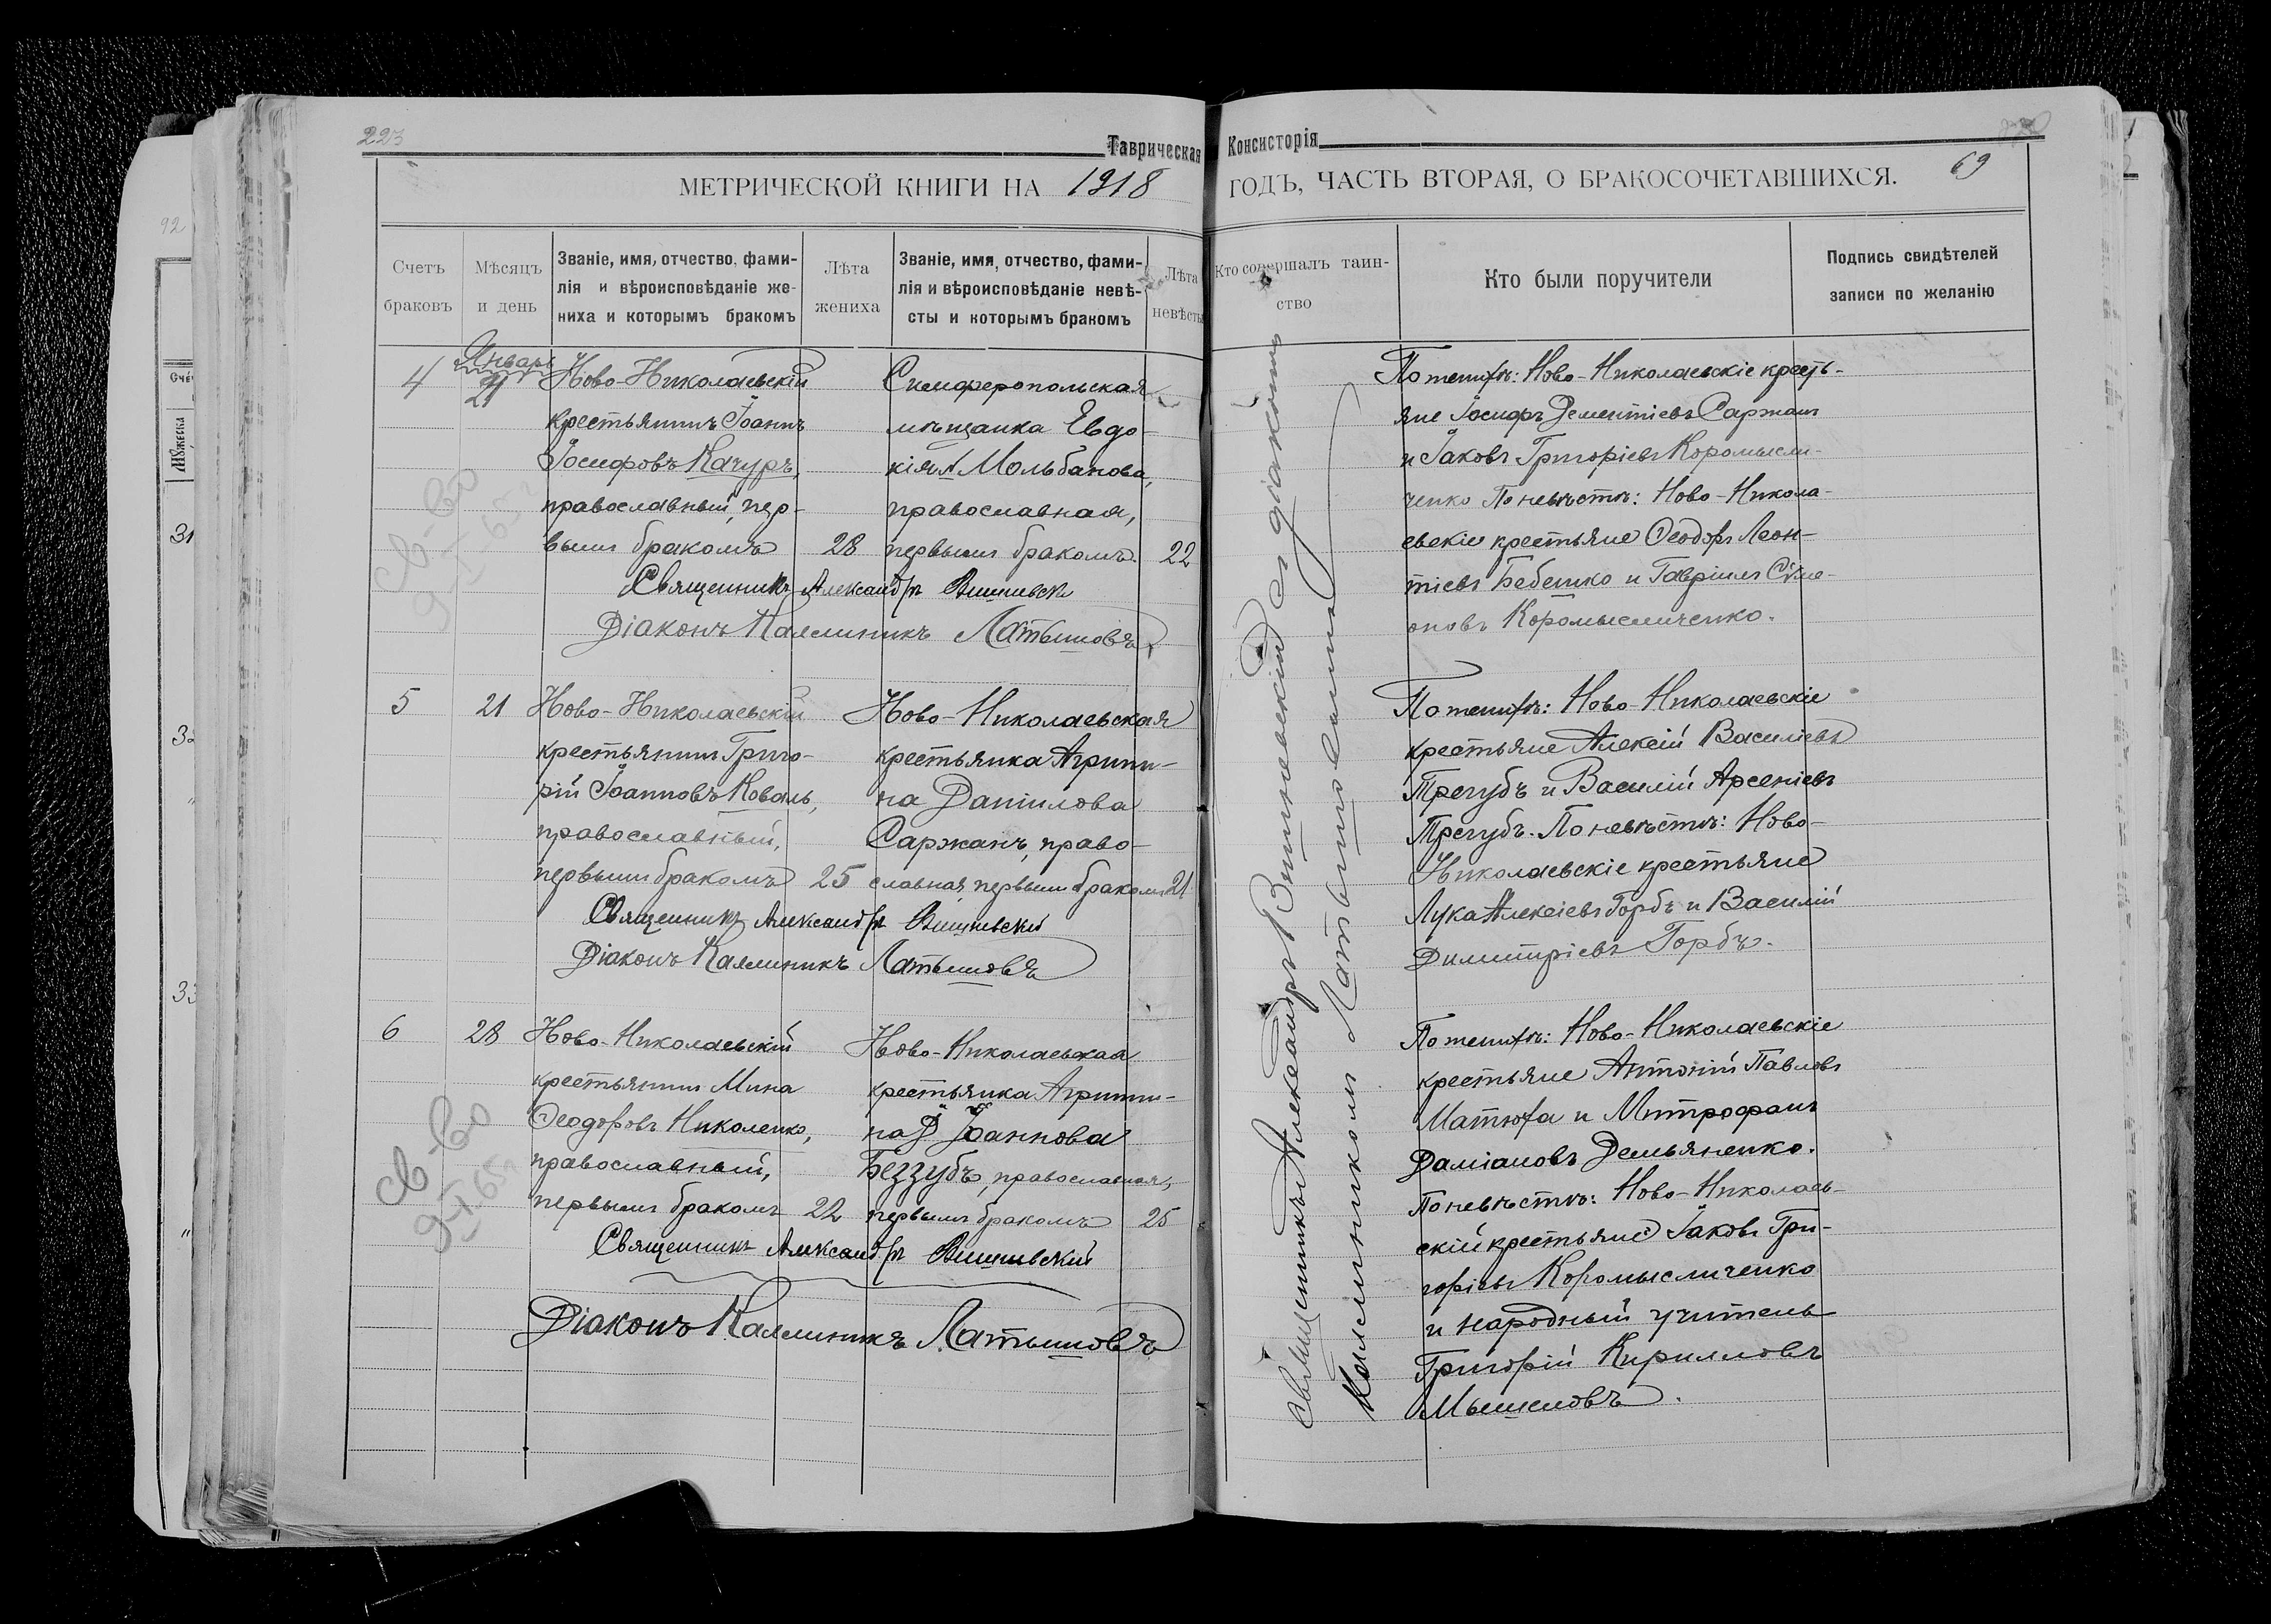 223
Таврическая Консисторія
69
МЕТРИЧЕСКОЙ КНИГИ НА 1918 ГОДЪ, ЧАСТЬ ВТОРАЯ, О БРАКОСОЧЕТАВШИХСЯ.
Счетъ браковъ
Мѣсяцъ и день
Званіе, имя, отчество, фами-
лія и вѣроисповѣданіе же-
ниха и которымъ бракомъ
Лѣта жениха
Званіе, имя, отчество, фами-
лія и вѣроисповѣданіе невѣ-
сты и которымъ бракомъ
Лѣта невѣсты
Кто совершалъ таин-
ство
Кто были поручители
Подпись свидѣтелей
записи по желанію
4
Январь
21
Ново-Николаевскій
крестьянинъ Іоаннъ
Іосифовъ Качуръ,
православный, пер-
вымъ бракомъ
28
Симферопольская
мѣщанка Евдо-
кія Мольбанова,
православная,
первымъ бракомъ.
22
Священникъ Александръ Вишневск
Діаконъ Каллиникъ Латышовъ
По женихѣ: Ново-Николаевскіе кресть-
яне Іосифъ Дементіевъ Саржанъ
и Іаковъ Григоріевъ Коромысли-
ченко По невѣстѣ: Ново-Никола-
евскіе крестьяне Ѳеодоръ Леон-
тіевъ Бебешко и Гавріилъ Симе-
оновъ Коромысличенко.
5
21
Ново-Николаевскій
крестьянинъ Григо-
рій Іоанновъ Коваль,
православный,
первымъ бракомъ
25
Ново-Николаевская
крестьянка Агрипи-
на Даніилова
Саржанъ, право-
славная, первымъ бракомъ
21
Священникъ Александръ Вишневскій
Діаконъ Каллиникъ Латышовъ
По женихѣ: Ново-Николаевскіе
крестьяне Алексій Василіевъ
Трегубъ и Василій Арсеніевъ
Трегубъ. По невѣстѣ: Ново-
Николаевскіе крестьяне
Лука Алексіевъ Горбъ и Василій
Димитріевъ Горбъ.
6
28
Ново-Николаевскій
крестьянинъ Мина
Ѳеодоровъ Николенко,
православный,
первымъ бракомъ
22
Ново-Николаевская
крестьянка Агриппи-
на Іоаннова
Беззубъ, православная,
первымъ бракомъ
25
Священникъ Александръ Вишневскій
Діаконъ Каллиникъ Латышовъ
По женихѣ: Ново-Николаевскіе
крестьяне Антоній Павловъ
Матюха и Митрофанъ
Даміановъ Демьяненко.
По невѣстѣ: Ново-Николаев-
скій крестьяне Іаковъ Гри-
горіевъ Коромысличенко
и народный учитель
Григорій Кирилловъ
Мышковъ.
Священникъ Александръ Вишневскій съ діакономъ
Каллиникомъ Латышовымъ
св-во
св-во
92
31
32
33